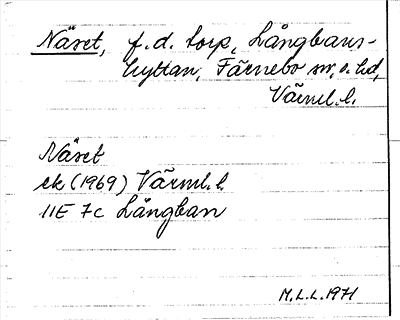 Näset, f.d. torp, Långbans-
hyttan, Färnebo sn, o. hd,
Värml. l.
Näset
ek (1969) Värml. l
11E 7c Långban
M.L.L. 1971